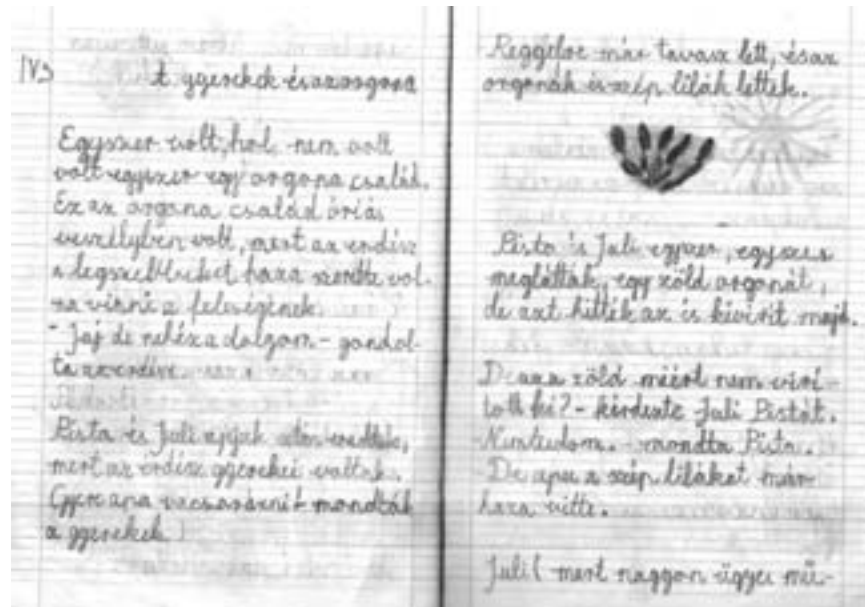 IV/3
A gyerekek és az orgona
Egyszer volt, hol nem volt
volt egyszer egy orgona család.
Ez az orgona család óriás
veszélyben volt, mert az erdész
a legszebbeket haza szerette vol-
na vinni a feleségének.
- Jaj de nehéz a dolgom - gondol-
ta az erdész.
Pista és Juli apjuk után eredtek,
mert az erdész gyerekei voltak.
Gyere apa vacsorázni - mondták
a gyerekek
Reggelre már tavasz lett, és az
orgonák is szép lilák lettek.
Pista és Juli egyszer, egyszer
meglátták, egy zöld orgonát,
de azt hitték az is kivirít majd.
De az a zöld miért nem virí-
tott ki? - kérdezte Juli Pistát.
Nemtudom. - mondta Pista.
De apu a szép lilákat már
haza vitte.
Juli ( mert naggyon ügyes mű-